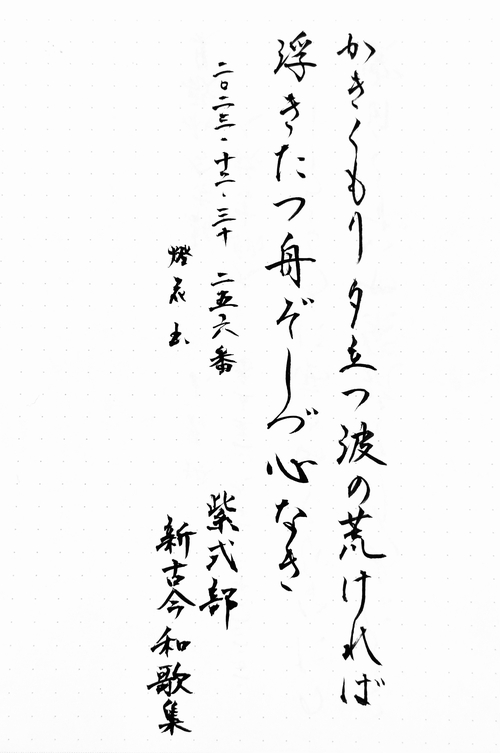 かきくもり夕立つ波の荒ければ
浮きたつ舟ぞしづ心なき
二〇二三・十二・三十 二五六番
紫式部
新古今和歌集